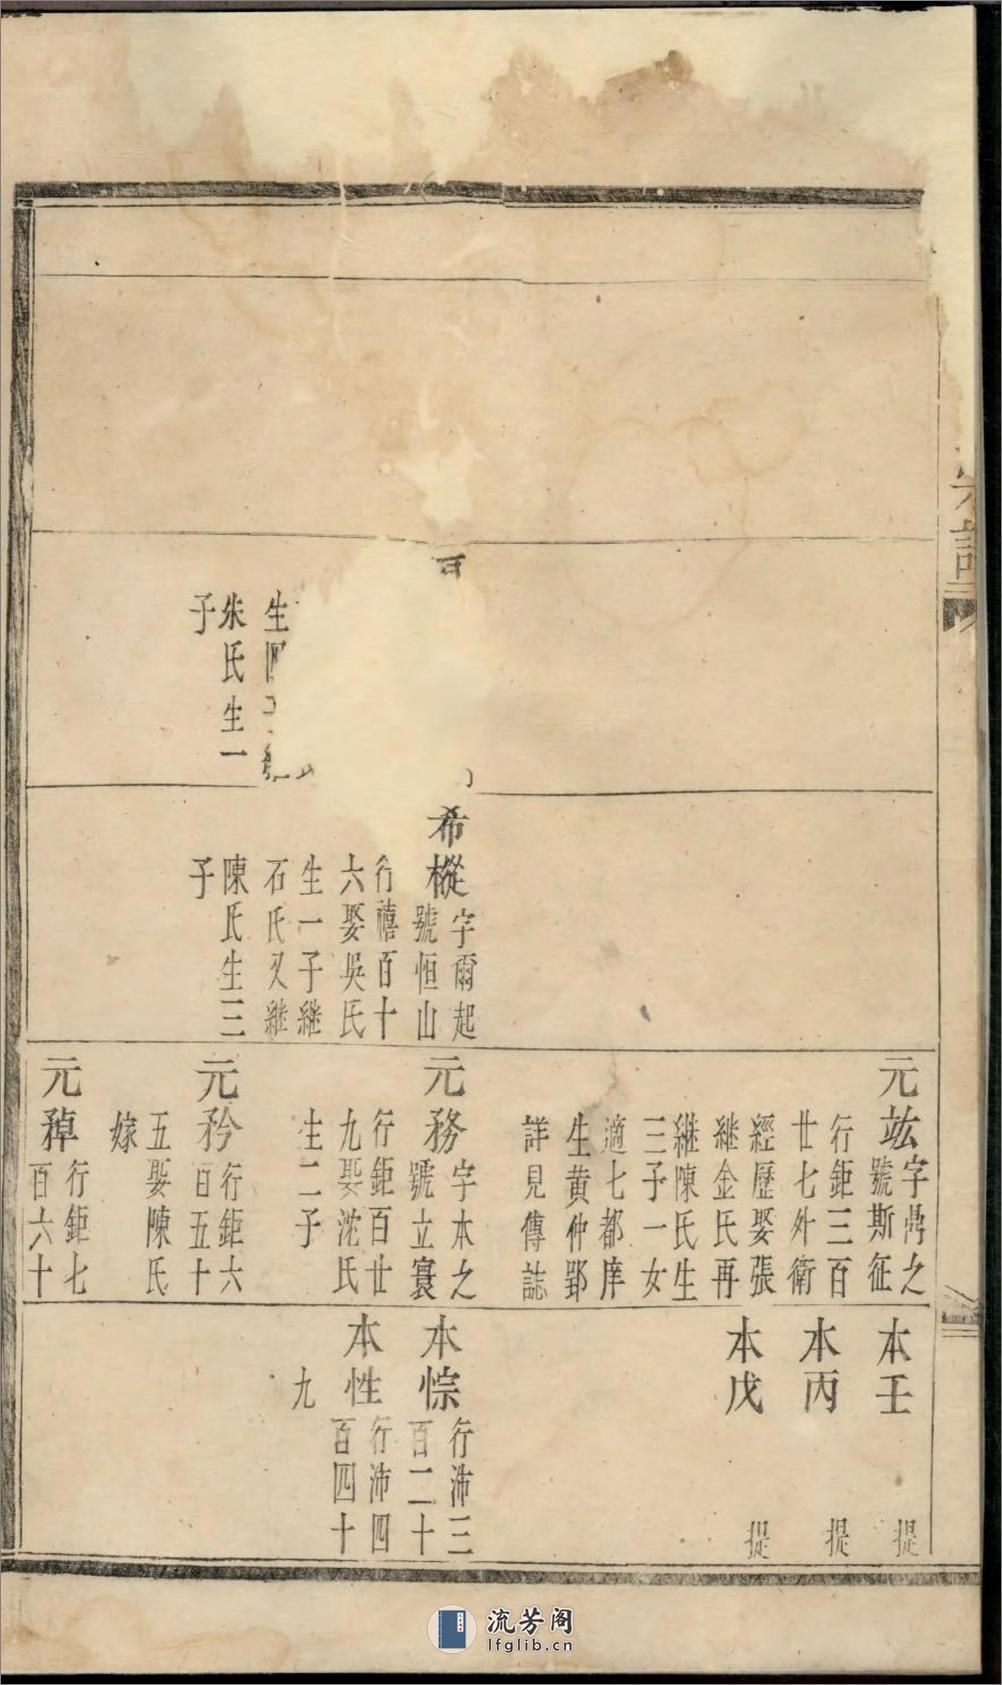 宗譜
百
生四子
朱氏生一
子
希樅
字爾起
號恒山
行禧百十
六娶吳氏
生一子繼
石氏又繼
陳氏生三
子
元竑
字鼑之
號斯征
行鉅三百
廿七外衛
經歷娶張
繼金氏再
繼陳氏生
三子一女
適七都庠
生黄仲郢
詳見傳誌
元務
字本之
號立寰
行鉅百廿
九娶沈氏
生二子
元矜
行鉅六
百五十
五娶陳氏
嫁
元稕
行鉅七
百六十
本壬
提
本丙
提
本戊
提
本悰
行沛三
百二十
本性
行沛四
百四十
九
流芳阁
lfglib.cn